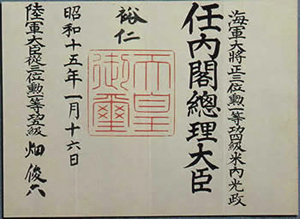 海軍大將正三位勲一等功四級米内光政
任内閣總理大臣
裕仁
天皇
御璽
昭和十五年一月十六日
陸軍大臣從三位勲一等 畑俊六